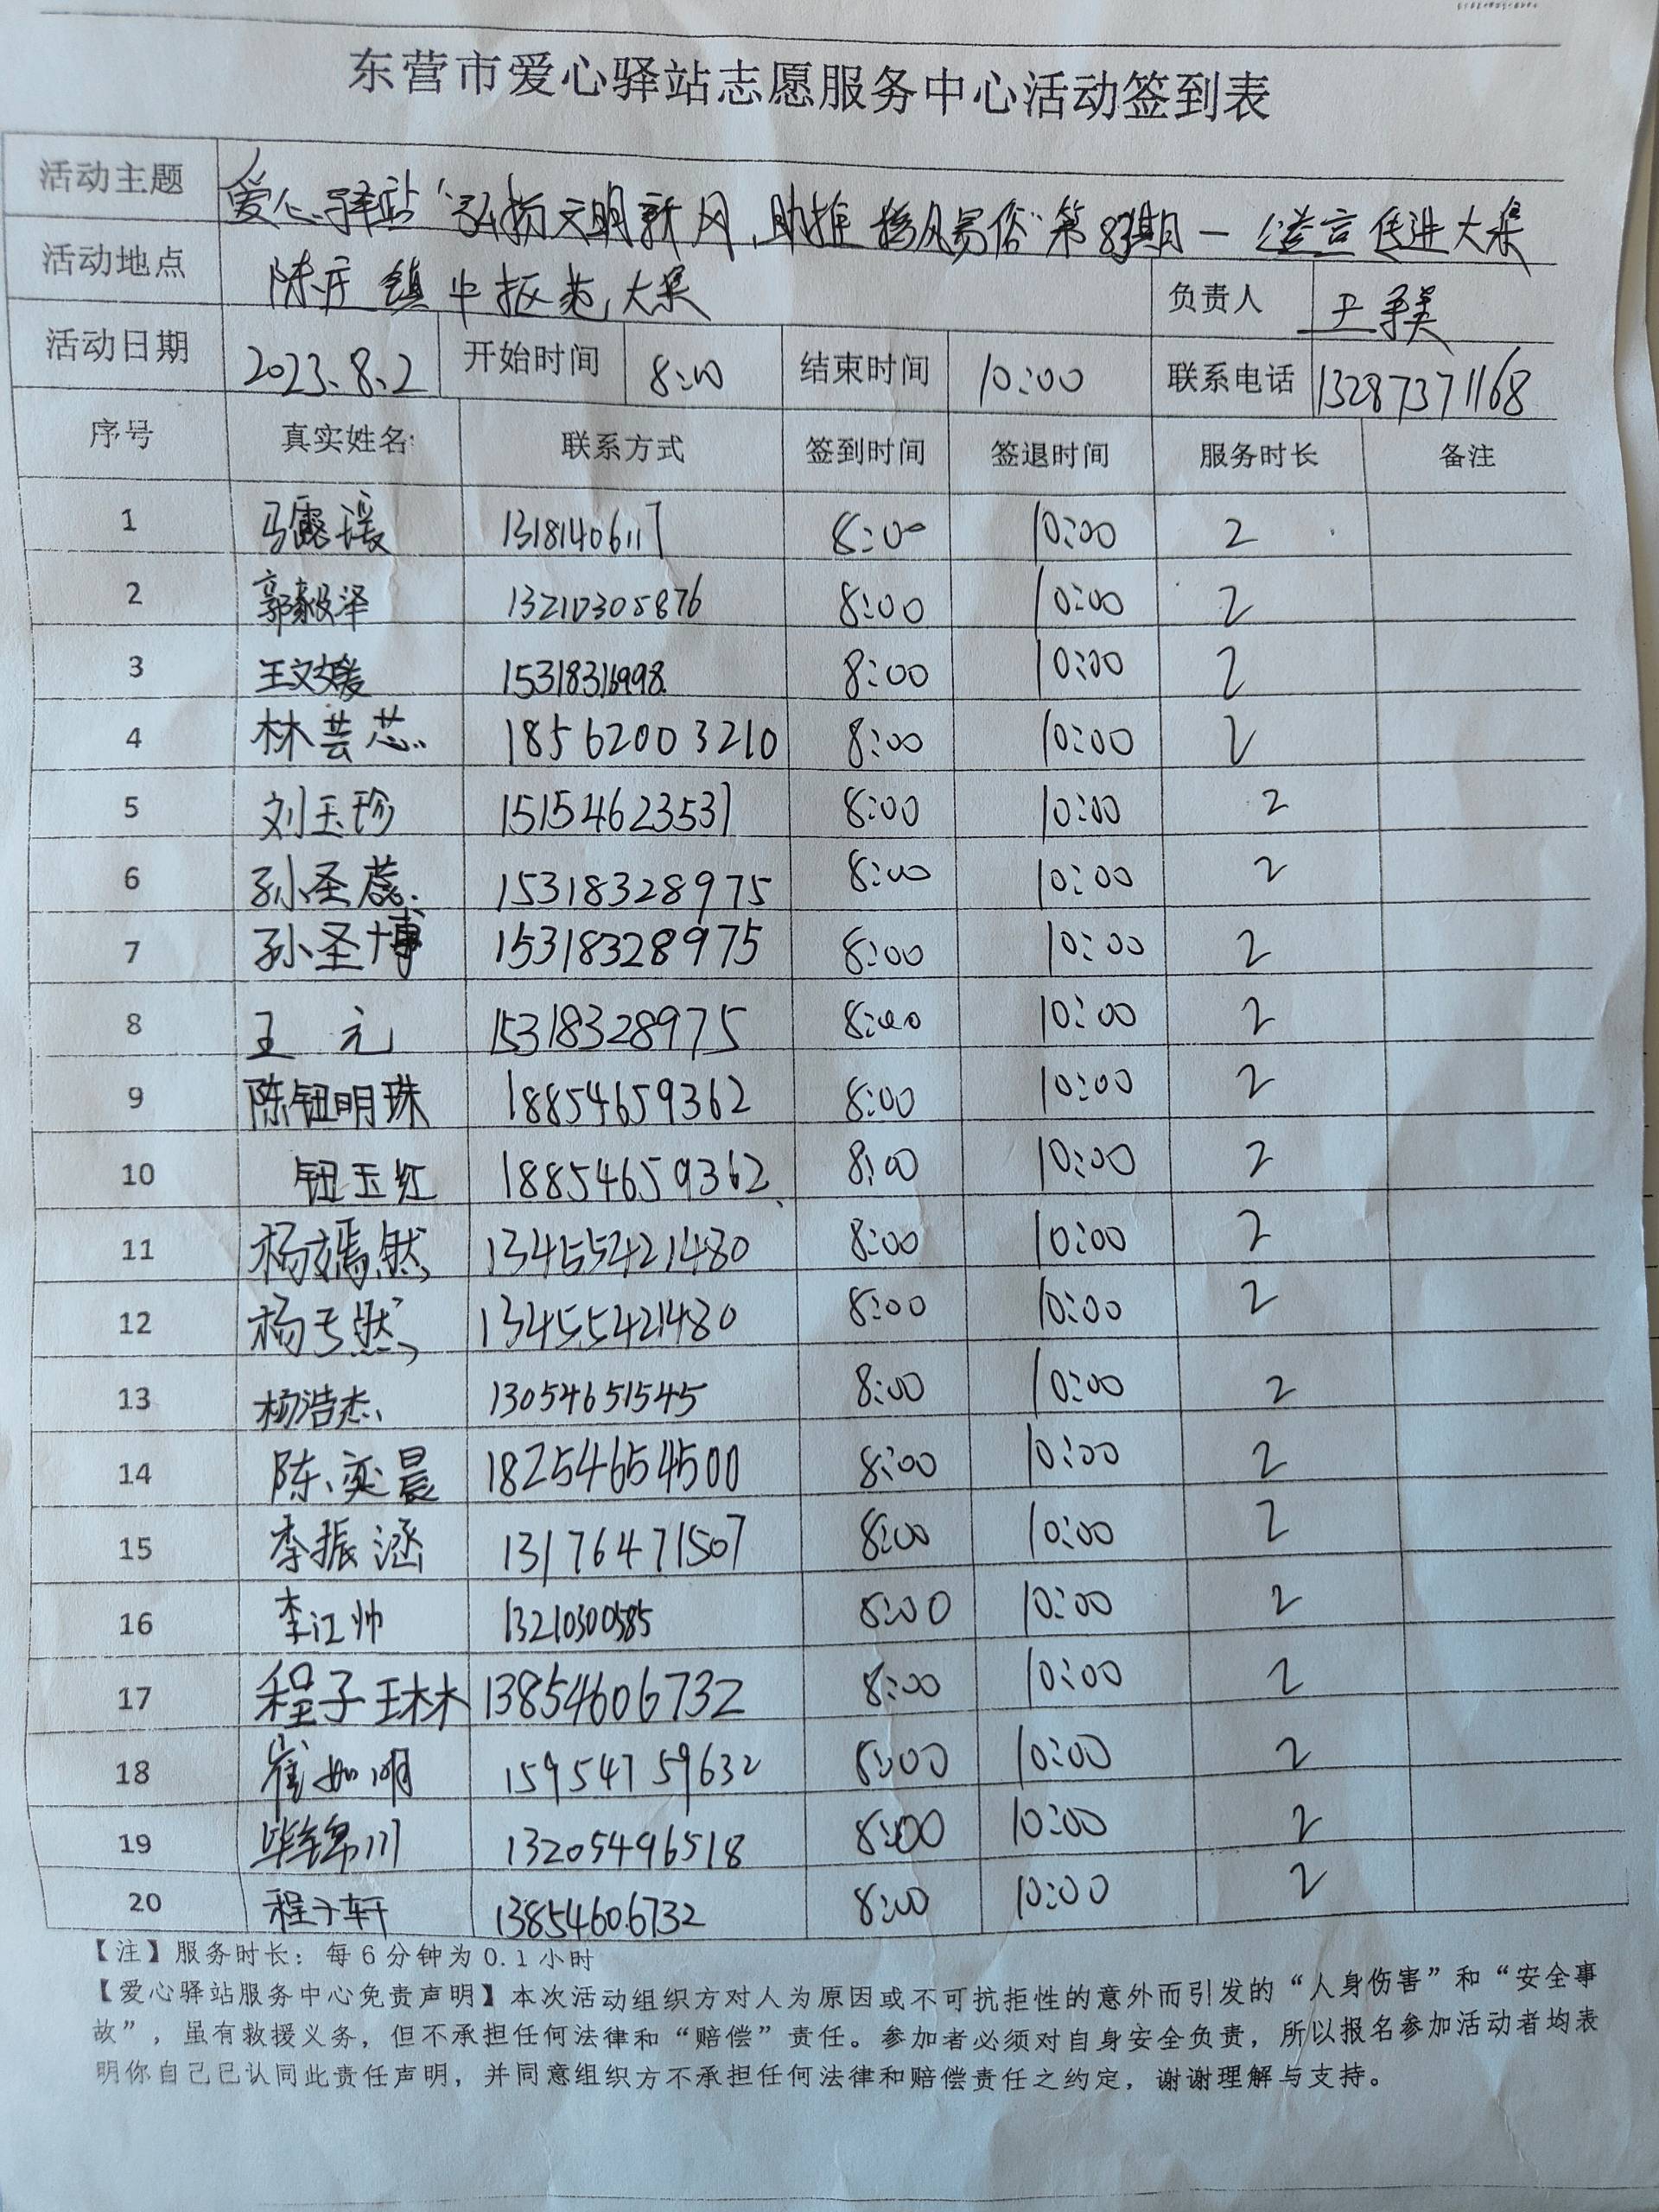 东营市爱心驿站志愿服务中心活动签到表
活动主题 爱心驿站“弘扬文明新风,助推移风易俗”第83期一 宣传进大集
活动地点 陈庄镇中 大集 负责人 王
活动日期 2023.8.2 开始时间 8:00 结束时间 10:00 联系电话 13287371168
序号 真实姓名 联系方式 签到时间 签退时间 服务时长 备注
1 马露瑗 13181406117 8:00 10:00 2
2 郭毅泽 13210305876 8:00 10:00 2
3 王文媛 15318316998 8:00 10:00 2
4 林芸芯 18562003210 8:00 10:00 2
5 刘玉珍 15154623531 8:00 10:00 2
6 孙圣蕊 15318328975 8:00 10:00 2
7 孙圣博 15318328975 8:00 10:00 2
8 王元 15318328975 8:00 10:00 2
9 陈钮明珠 18854659362 8:00 10:00 2
10 钮玉红 18854659362 8:00 10:00 2
11 杨嫣然 13455421480 8:00 10:00 2
12 杨 然 13455421480 8:00 10:00 2
13 杨浩杰 13054651545 8:00 10:00 2
14 陈奕晨 18254654500 8:00 10:00 2
15 李振涵 13176471507 8:00 10:00 2
16 李江帅 13210300585 8:00 10:00 2
17 程子琳 13854606732 8:00 10:00 2
18 崔如明 15954759632 8:00 10:00 2
19 毕锦川 13205496518 8:00 10:00 2
20 程子轩 13854606732 8:00 10:00 2
【注】服务时长：每6分钟为0.1小时
【爱心驿站服务中心免责声明】本次活动组织方对人为原因或不可抗拒性的意外而引发的“人身伤害”和“安全事
故”，虽有救援义务，但不承担任何法律和“赔偿”责任。参加者必须对自身安全负责，所以报名参加活动者均表
明你自己已认同此责任声明，并同意组织方不承担任何法律和赔偿责任之约定，谢谢理解与支持。